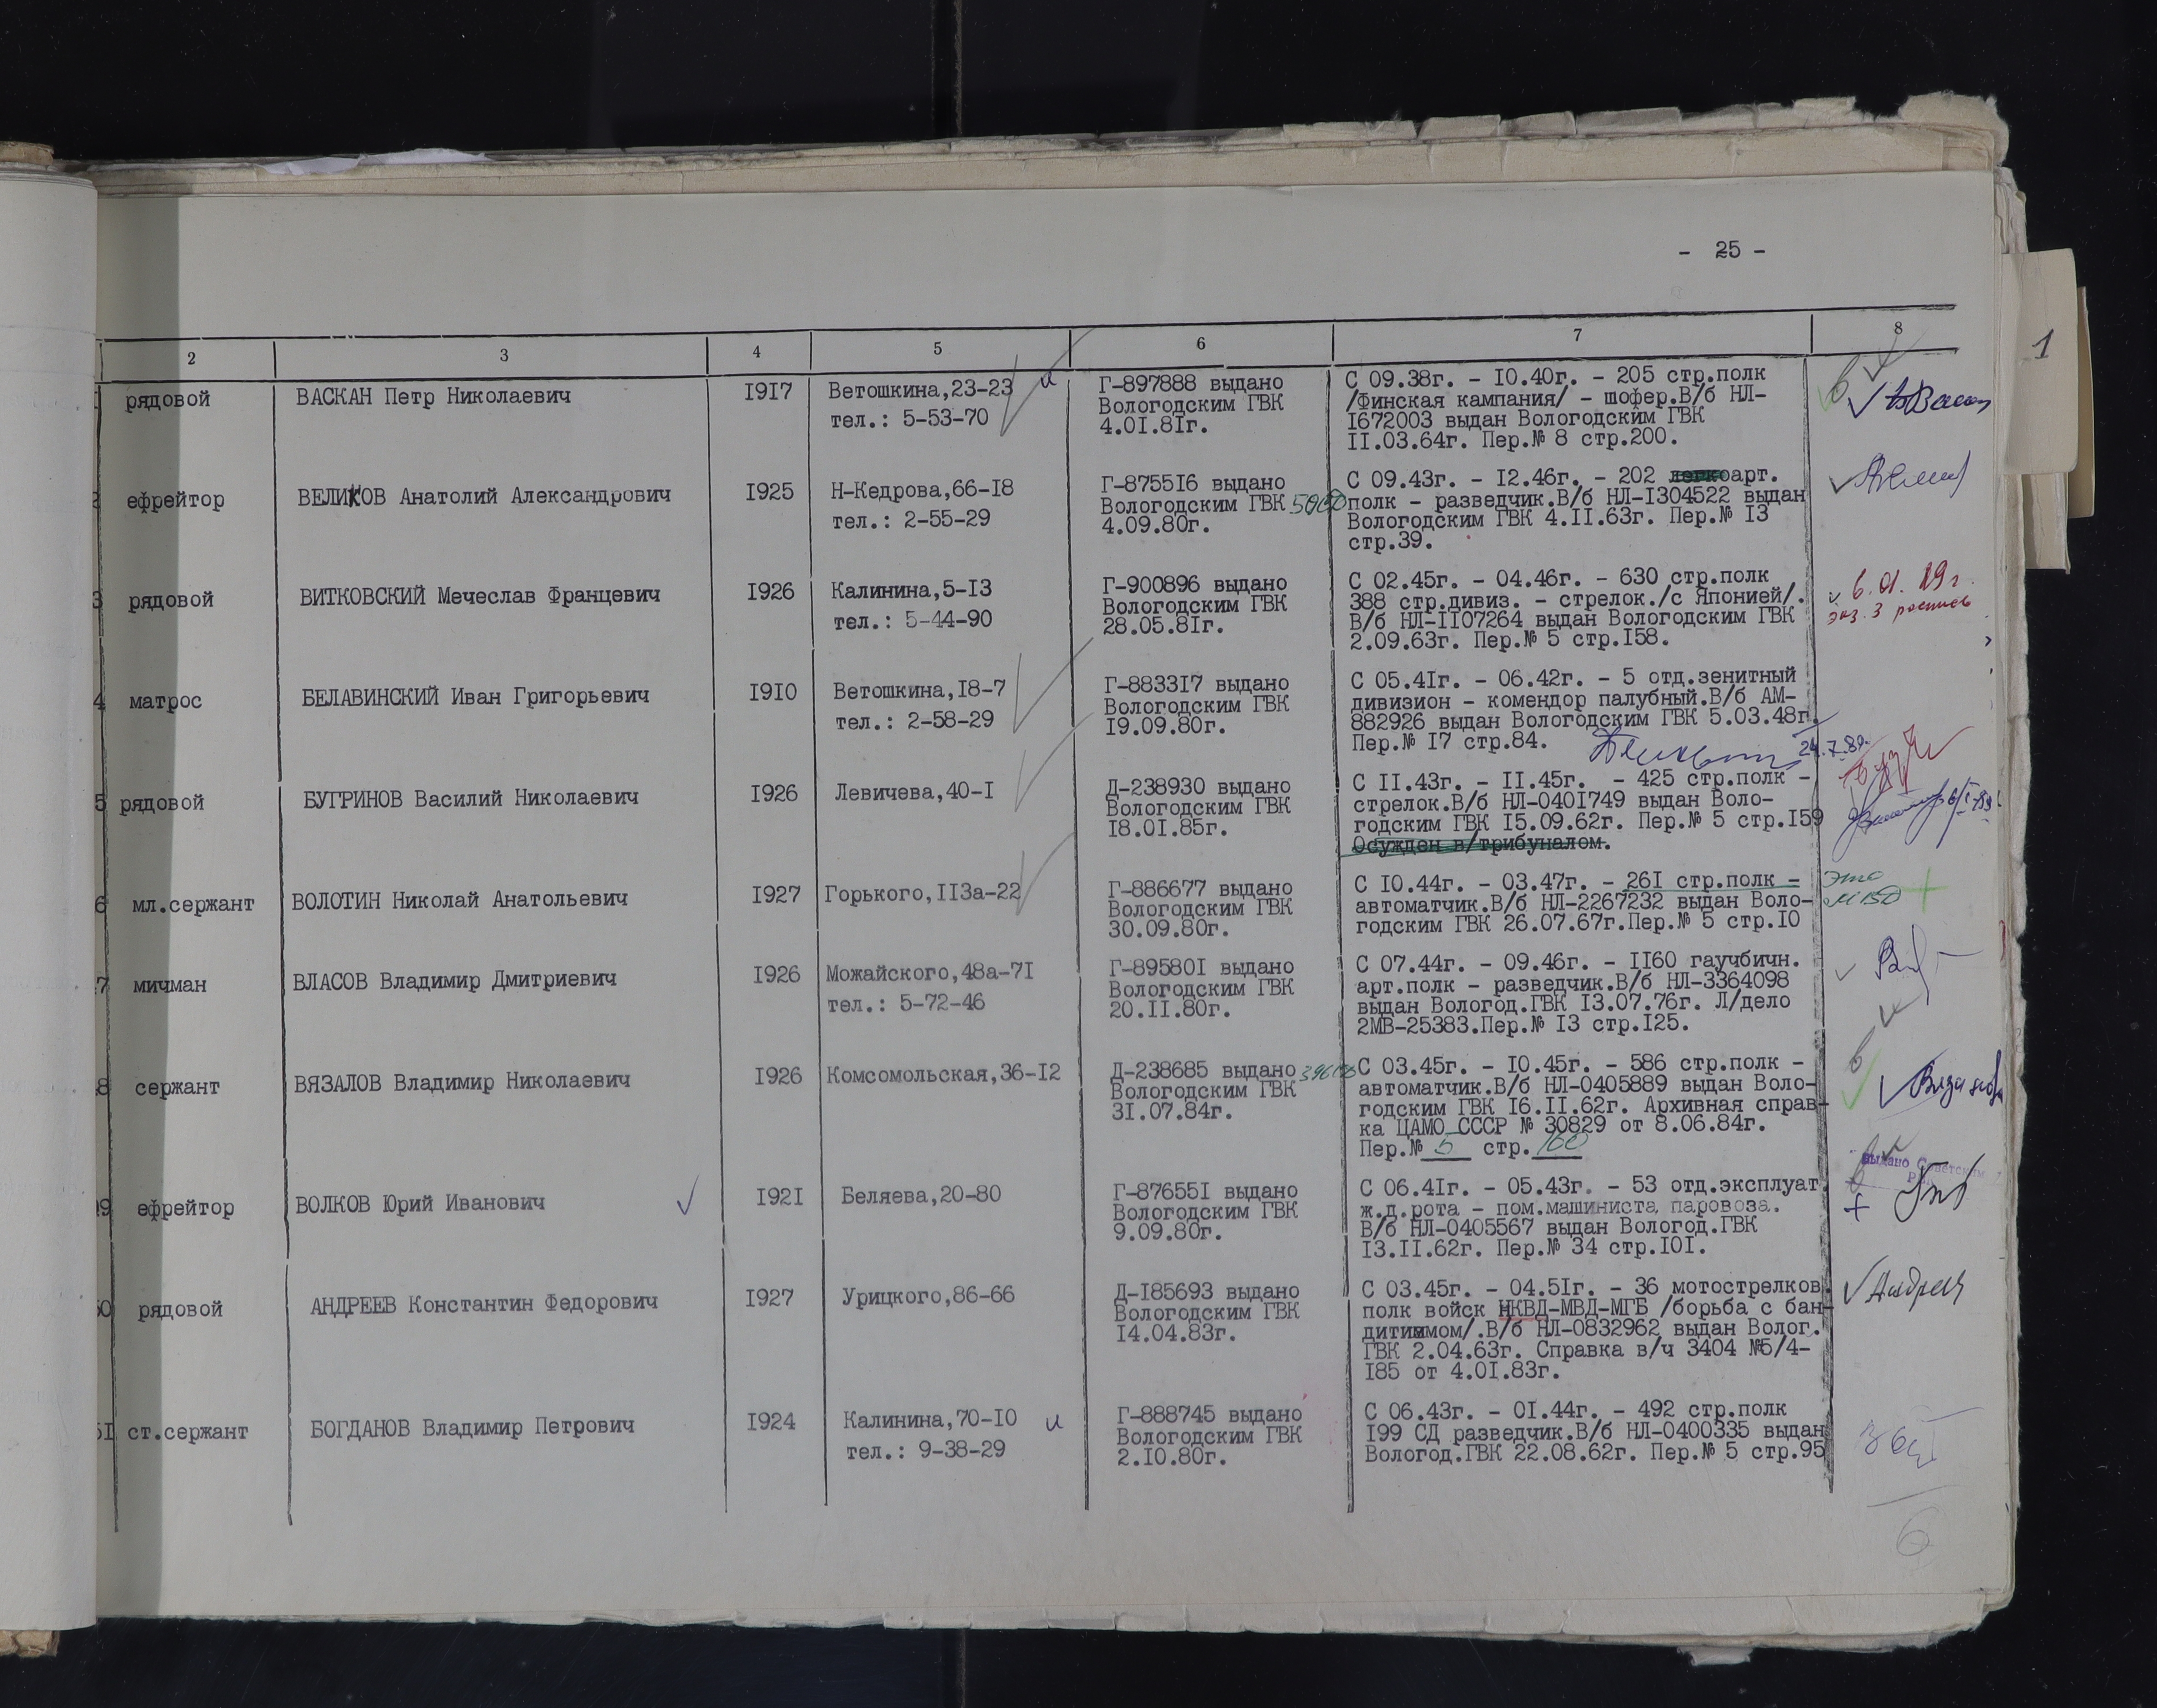 - 25 -
1
2 3 4 5 6 7 8
рядовой ВАСКАН Петр Николаевич 1917 Ветошкина,23-23 и Г-897888 выдано С 09.38г. - 10.40г. - 205 стр.полк
тел.: 5-53-70 Вологодским ГВК /Финская кампания/ - шофер.В/б НЛ-
4.01.81г. 1672003 выдан Вологодским ГВК
11.03.64г. Пер.№ 8 стр.200.
ефрейтор ВЕЛИКОВ Анатолий Александрович 1925 Н-Кедрова,66-18 Г-875516 выдано С 09.43г. - 12.46г. - 202 легкоарт.
тел.: 2-55-29 Вологодским ГВК полк - разведчик.В/б НЛ-1304522 выдан
4.09.80г. Вологодским ГВК 4.11.63г. Пер.№ 13
стр.39.
3 рядовой ВИТКОВСКИЙ Мечеслав Францевич 1926 Калинина,5-13 Г-900896 выдано С 02.45г. - 04.46г. - 630 стр.полк
тел.: 5-44-90 Вологодским ГВК 388 стр.дивиз. - стрелок./с Японией/.
28.05.81г. В/б НЛ-1107264 выдан Вологодским ГВК
2.09.63г. Пер.№ 5 стр.158.
6.01.89г.
экз. 3 роспись
4 матрос БЕЛАВИНСКИЙ Иван Григорьевич 1910 Ветошкина,18-7 Г-883317 выдано С 05.41г. - 06.42г. - 5 отд.зенитный
тел.: 2-58-29 Вологодским ГВК дивизион - комендор палубный.В/б АМ-
19.09.80г. 882926 выдан Вологодским ГВК 5.03.48г.
Пер.№ 17 стр.84. 24.7.89.
5 рядовой БУГРИНОВ Василий Николаевич 1926 Левичева,40-1 Д-238930 выдано С 11.43г. - 11.45г. - 425 стр.полк -
Вологодским ГВК стрелок.В/б НЛ-0401749 выдан Воло-
18.01.85г. годским ГВК 15.09.62г. Пер.№ 5 стр.159
Осужден в/трибуналом.
6 мл.сержант ВОЛОТИН Николай Анатольевич 1927 Горького,113а-22 Г-886677 выдано С 10.44г. - 03.47г. - 261 стр.полк - это
Вологодским ГВК автоматчик.В/б НЛ-2267232 выдан Воло- МВД +
30.09.80г. годским ГВК 26.07.67г.Пер.№ 5 стр.10
7 мичман ВЛАСОВ Владимир Дмитриевич 1926 Можайского,48а-71 Г-895801 выдано С 07.44г. - 09.46г. - 1160 гаучбичн.
тел.: 5-72-46 Вологодским ГВК арт.полк - разведчик.В/б НЛ-3364098
20.11.80г. выдан Вологод.ГВК 13.07.76г. Л/дело
2МВ-25383.Пер.№ 13 стр.125.
8 сержант ВЯЗАЛОВ Владимир Николаевич 1926 Комсомольская,36-12 Д-238685 выдано С 03.45г. - 10.45г. - 586 стр.полк -
Вологодским ГВК автоматчик.В/б НЛ-0405889 выдан Воло-
31.07.84г. годским ГВК 16.11.62г. Архивная справ-
ка ЦАМО СССР № 30829 от 8.06.84г.
Пер.№ 5 стр. 160
9 ефрейтор ВОЛКОВ Юрий Иванович 1921 Беляева,20-80 Г-876551 выдано С 06.41г. - 05.43г. - 53 отд.эксплуат. выдано Советским
Вологодским ГВК ж.д.рота - пом.машиниста паровоза. +
9.09.80г. В/б НЛ-0405567 выдан Вологод.ГВК
13.11.62г. Пер.№ 34 стр.101.
0 рядовой АНДРЕЕВ Константин Федорович 1927 Урицкого,86-66 Д-185693 выдано С 03.45г. - 04.51г. - 36 мотострелков. Андреев
Вологодским ГВК полк войск НКВД-МВД-МГБ /борьба с бан-
14.04.83г. дитимом/.В/б НЛ-0832962 выдан Волог.
ГВК 2.04.63г. Справка в/ч 3404 №5/4-
185 от 4.01.83г.
51 ст.сержант БОГДАНОВ Владимир Петрович 1924 Калинина,70-10 и Г-888745 выдано С 06.43г. - 01.44г. - 492 стр.полк
тел.: 9-38-29 Вологодским ГВК 199 СД разведчик.В/б НЛ-0400335 выдан
2.10.80г. Вологод.ГВК 22.08.62г. Пер.№ 5 стр.95
6